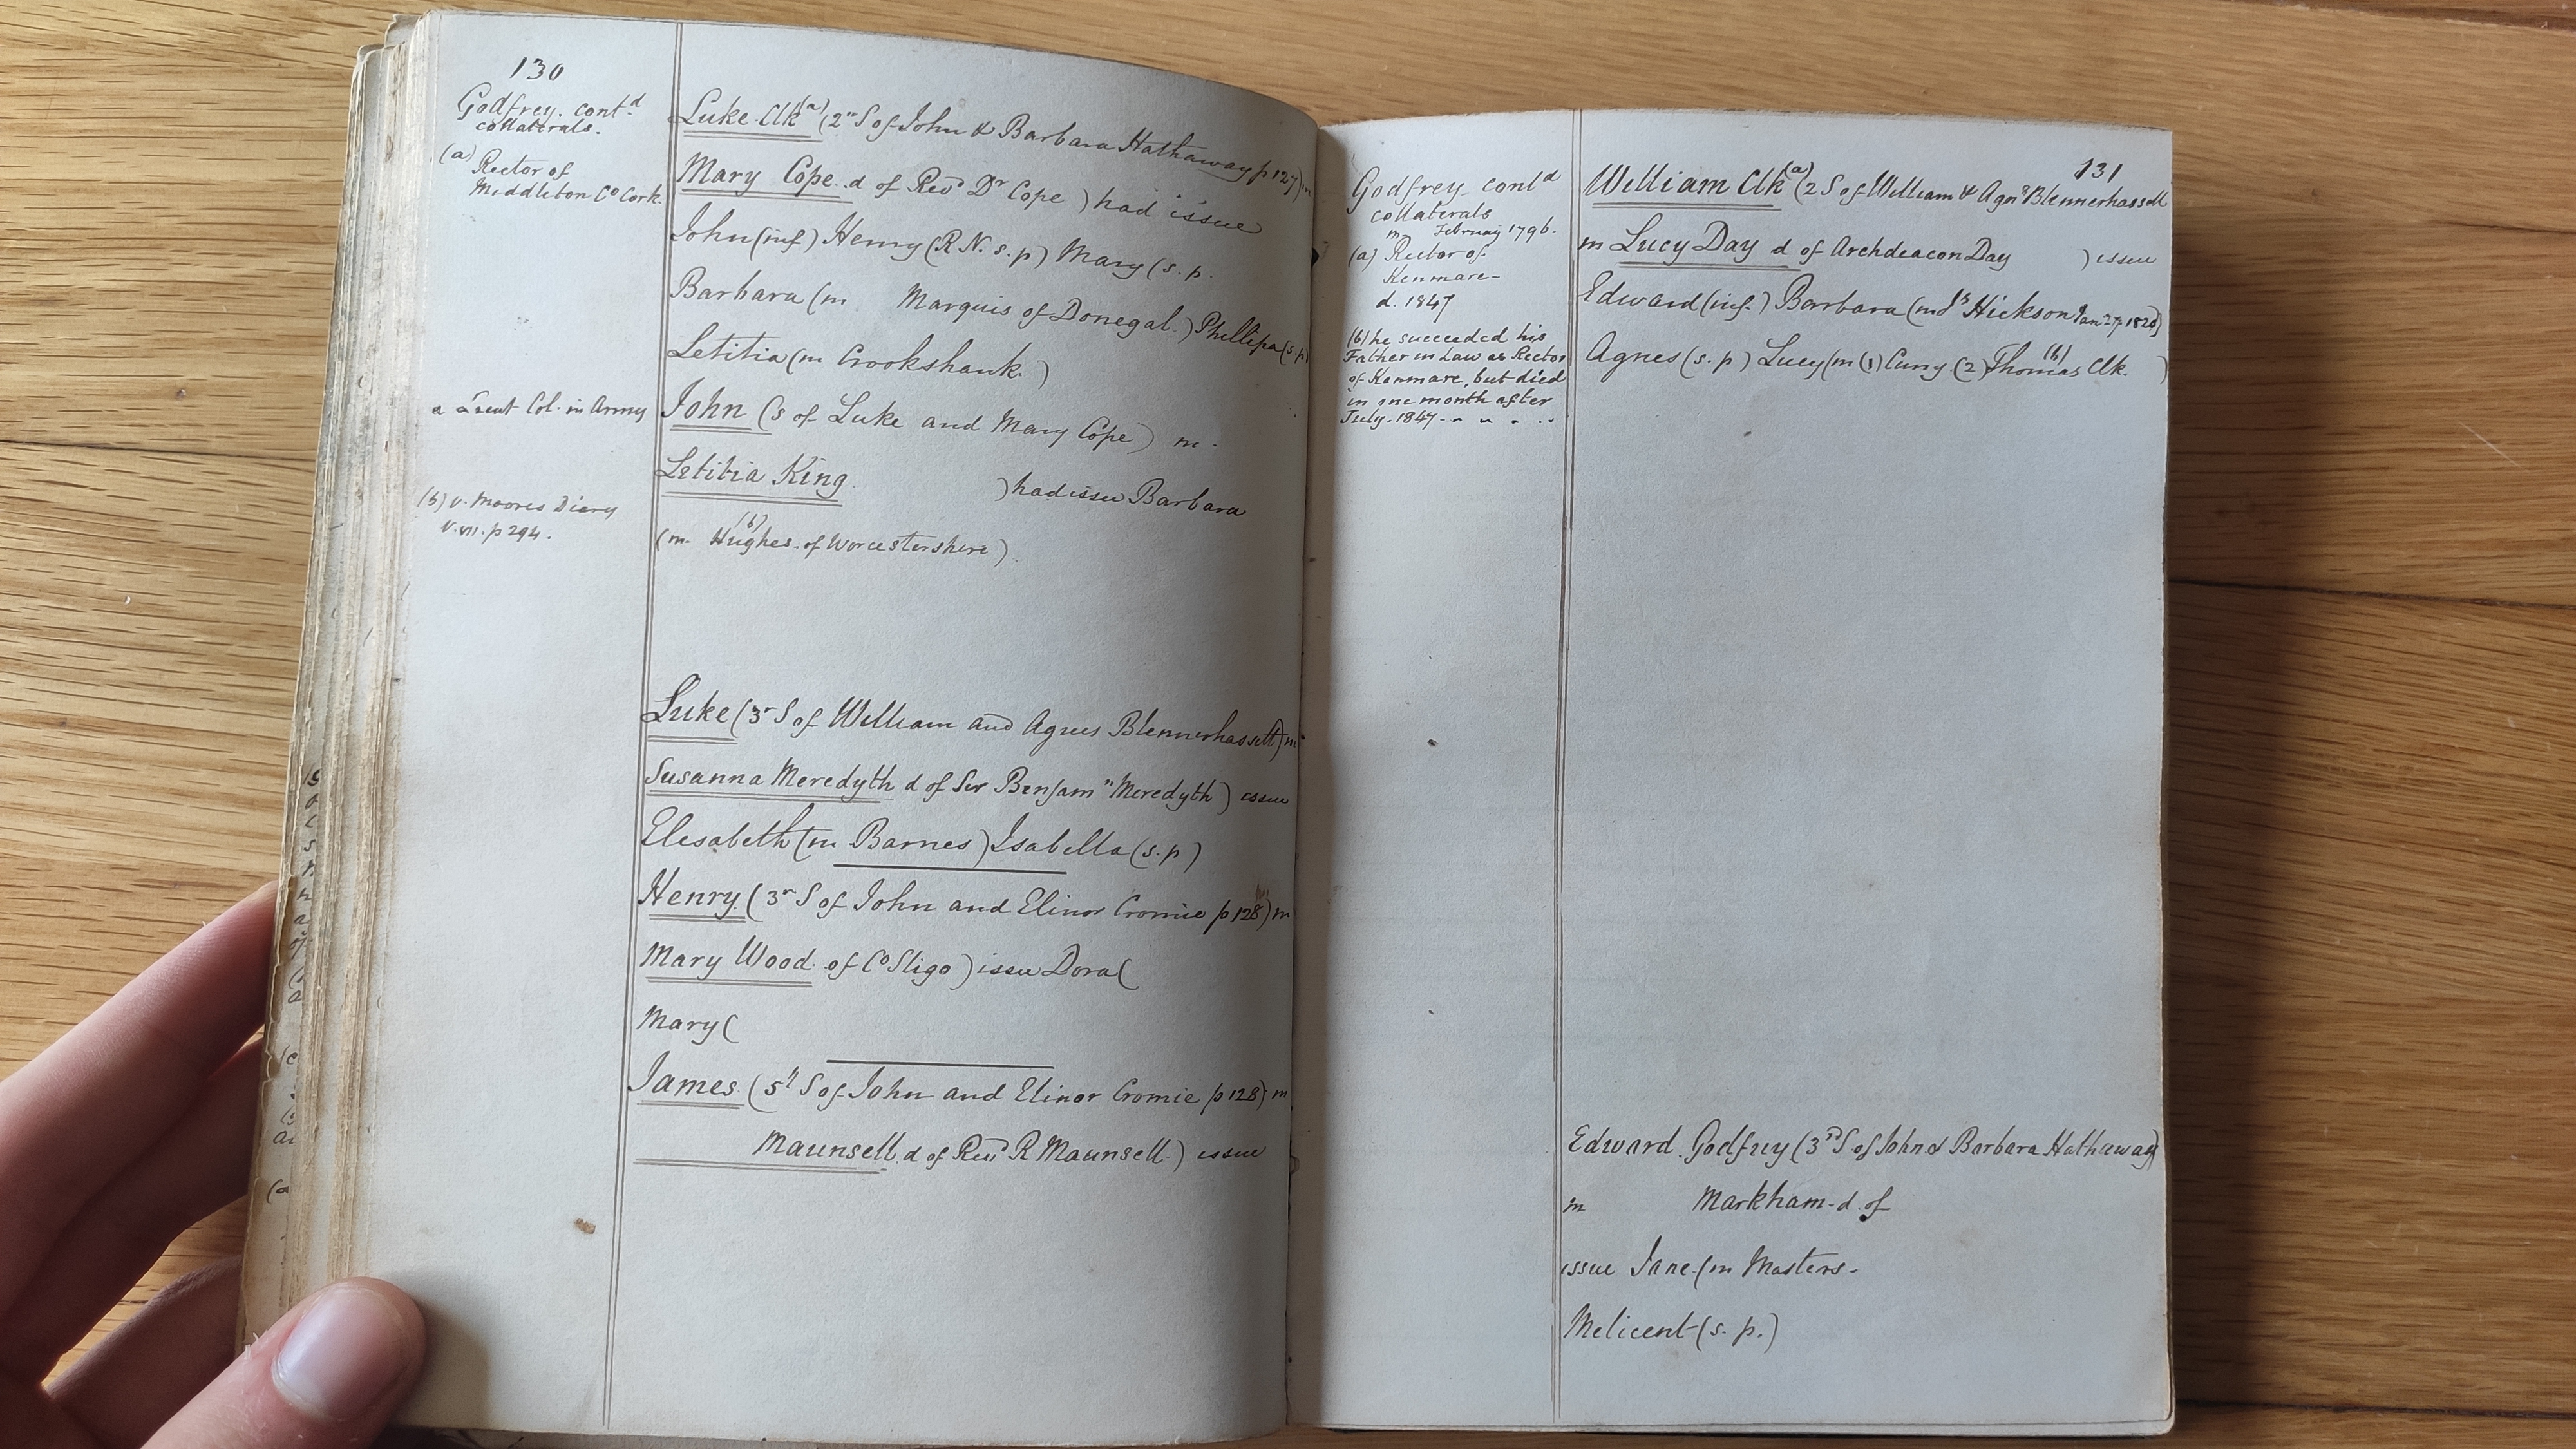 130
Godfrey. contd
collaterals.
(a) Rector of
Middleton Co Cork.
a Lieut Col. in Army
(b) v. Moores Diary
v. vii. p 294.
Luke Clk (a) (2n S of John & Barbara Hathaway p 127) m
Mary Cope. d of Revd Dr Cope ) had issue
John (inf) Henry (R.N. s.p) Mary (s.p.
Barbara (m Marquis of Donegal.) Phillipa (s.p)
Letitia (m Crookshank.)
John (s of Luke and Mary Cope) m.
Letitia King. ) had issue Barbara
(m. Hughes (b) of Worcestershire).
Luke (3r S of William and Agnes Blennerhassett) m
Susanna Meredyth d of Sir Benjamn Meredyth) issue
Elesabeth (m Barnes) Isabella (s.p)
Henry. (3r S of John and Elinor Cromie p 128) m
Mary Wood. of Co Sligo) issue Dora (
Mary (
James. (5t S of John and Elinor Cromie p 128) m
Maunsell. d of Revd R Maunsell.) issue
131
Godfrey contd
collaterals
m February 1796.
(a) Rector of
Kenmare-
d. 1847
(b) he succeeded his
Father in Law as Rector
of Kenmare, but died
in one month after
July. 1847
William Clk (a) (2 S of William & Agns Blennerhassett
m Lucy Day d of Archdeacon Day ) issue
Edward (inf.) Barbara (m Js Hickson Jan 27 1820)
Agnes (s.p) Lucy (m (1) Cuny (2) Thomas (b) Clk. )
Edward. Godfrey (3rd S of John & Barbara Hathaway)
m Markham. d. of
issue Jane. (m Masters-
Melicent (s. p.)